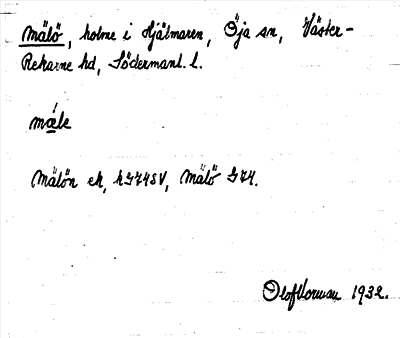 Mälö, holme i Hjälmaren, Öja sn, Väster-
Rekarne hd, Södermanl. l.
mæle
Mälön ek, h374SV, Mälö J74.
Olof Norman 1932.